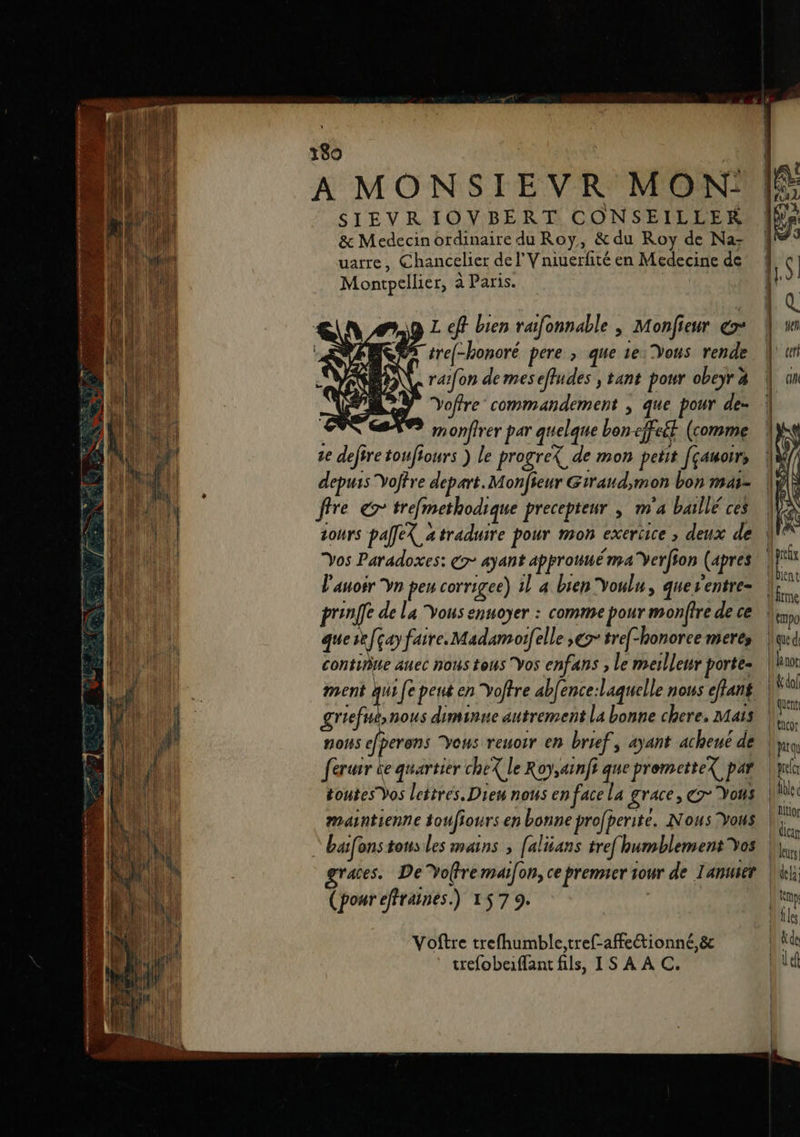 180
A MONSIEVR MON-
SIEVR IOVBERT CONSEILLER
& Medecin ordinaire du Roy, & du Roy de Na-
uarre, Chancelier de l'Vniuerſité en Medecine de
Montpellier, à Paris.
IL eſt bien raiſonnable, Monſieur &
treſ-honoré pere, que ie vous rende
raiſon de mes eſtudes, tant pour obeyr à
voſtre commandement, que pour de-
monſtrer par quelque bon effect (comme
ie deſire touſiours) le progrez de mon petit ſçauoir,
depuis voſtre depart. Monſieur Giraud, mon bon mai-
ſtre & treſmethodique precepteur, m'a baillé ces
iours paſſez à traduire pour mon exercice, deux de
vos Paradoxes: & ayant approuué ma verſion (apres
l'auoir vn peu corrigee) il a bien voulu, que i'entre-
prinſſe de la vous enuoyer: comme pour monſtre de ce
que ie ſçay faire. Madamoiſelle, & treſ-honoree mere,
continue auec nous tous vos enfans, le meilleur porte-
ment qui ſe peut en voſtre abſence: laquelle nous eſtant
griefue, nous diminue autrement la bonne chere. Mais
nous eſperons vous reuoir en brief, ayant acheué de
ſeruir ce quartier chez le Roy, ainſi que promettez par
toutes vos lettres. Dieu nous en face la grace, & vous
maintienne touſiours en bonne proſperité. Nous vous
baiſons tous les mains, ſalüans treſhumblement vos
graces. De voſtre maiſon, ce premier iour de Ianuier
(pour eſtraines.) 1579.
Voſtre treſhumble, treſ-affectionné, &
treſobeiſſant fils, ISAAC.